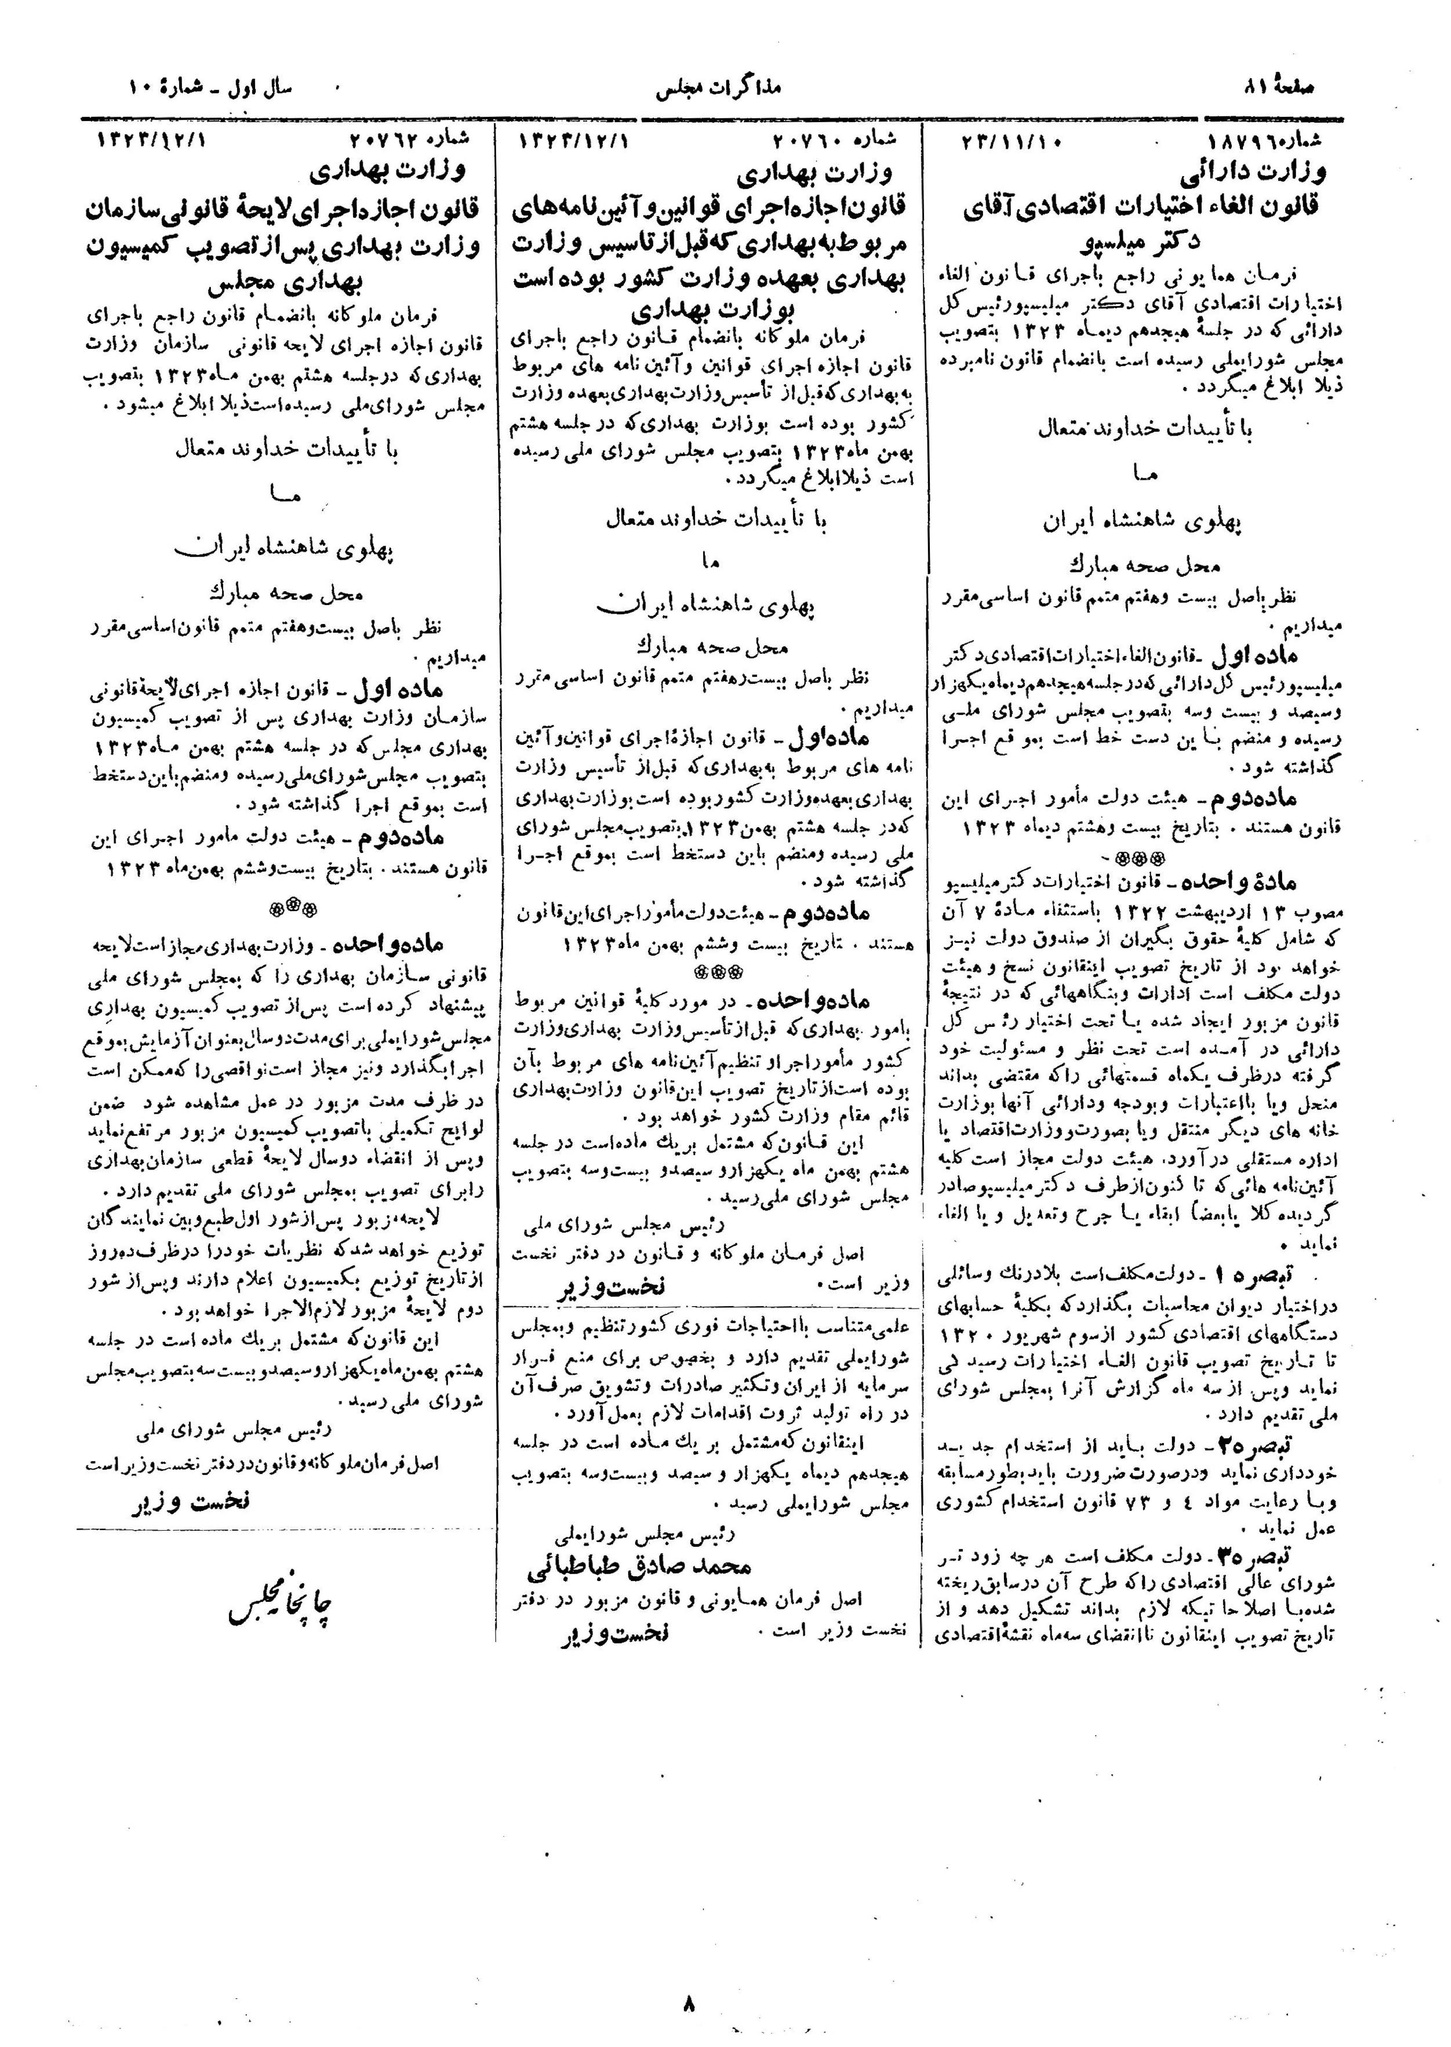 صفحهٔ ۸۱
مذاکرات مجلس
سال اول - شمارهٔ ۱۰
شماره ۱۸۷۹۶ ۲۳/۱۱/۱۰
وزارت دارائی
قانون الغاء اختیارات اقتصادی آقای
دکتر میلسپو
فرمان همایونی راجع باجرای قانون الغاء
اختیارات اقتصادی آقای دکتر میلیسپو رئیس کل
دارائی که در جلسهٔ هیجدهم دیماه ۱۳۲۳ بتصویب
مجلس شورایملی رسیده است بانضمام قانون نامبرده
ذیلا ابلاغ میگردد .
با تأییدات خداوند متعال
ما
پهلوی شاهنشاه ایران
محل صحه مبارك
نظر باصل بیست وهفتم متمم قانون اساسی مقرر
میداریم .
ماده اول - قانون الغاء اختیارات اقتصادی دکتر
میلیسپو رئیس کل دارائی که در جلسه هیجدهم دیماه یکهزار
وسیصد و بیست وسه بتصویب مجلس شورای ملی
رسیده و منضم باین دست خط است بموقع اجرا
گذاشته شود .
ماده دوم - هیئت دولت مأمور اجرای این
قانون هستند . بتاریخ بیست وهشتم دیماه ۱۳۲۳
مادهٔ واحده - قانون اختیارات دکتر میلیسپو
مصوب ۱۳ اردیبهشت ۱۳۲۲ باستثناء مادهٔ ۷ آن
که شامل کلیهٔ حقوق بگیران از صندوق دولت نیز
خواهد بود از تاریخ تصویب اینقانون نسخ و هیئت
دولت مکلف است ادارات وبنگاههائی که در نتیجهٔ
قانون مزبور ایجاد شده یا تحت اختیار رئس کل
دارائی در آمده است تحت نظر و مسئولیت خود
گرفته درظرف یکماه قسمتهائی راکه مقتضی بداند
منحل ویا بااعتبارات وبودجه ودارائی آنها بوزارت
خانه های دیگر منتقل ویا بصورت ووزارت اقتصاد یا
اداره مستقلی درآورد. هیئت دولت مجاز است کلیه
آئین نامه هائی که تا کنون ازطرف دکتر میلیسپو صادر
گردیده کلا یا بعضاً ابقاء یا جرح وتعدیل و یا الغاء
نماید .
تبصره ۱ - دولت مکلف است بلادرنك وسائلی
دراختیار دیوان محاسبات بگذارد که بکلیهٔ حسابهای
دستگاههای اقتصادی کشور از سوم شهریور ۱۳۲۰
تا تاریخ تصویب قانون الغاء اختیارات رسیدگی
نماید وپس از سه ماه گزارش آنرا بمجلس شورای
ملی تقدیم دارد .
تبصره ۲ - دولت باید از استخدام جدید
خودداری نماید ودرصورت ضرورت باید بطور مسابقه
وبا رعایت مواد ٤ و ۷۳ قانون استخدام کشوری
عمل نماید .
تبصره ۳ - دولت مکلف است هر چه زود تر
شورای عالی اقتصادی راکه طرح آن درسابق ریخته
شده با اصلاحاتیکه لازم بداند تشکیل دهد و از
تاریخ تصویب اینقانون تا انقضای سه ماه نقشهٔ اقتصادی
شماره ۲۰۷۶۰ ۱۳۲۳/۱۲/۱
وزارت بهداری
قانون اجازه اجرای قوانین و آئین نامه های
مربوط به بهداری که قبل از تاسیس وزارت
بهداری بعهده وزارت کشور بوده است
بوزارت بهداری
فرمان ملوکانه بانضمام قانون راجع باجرای
قانون اجازه اجرای قوانین و آئین نامه های مربوط
به بهداری که قبل از تأسیس وزارت بهداری بعهده وزارت
کشور بوده است بوزارت بهداری که در جلسه هشتم
بهمن ماه ۱۳۲۳ بتصویب مجلس شورای ملی رسیده
است ذیلا ابلاغ میگردد .
با تأییدات خداوند متعال
ما
پهلوی شاهنشاه ایران
محل صحه مبارك
نظر باصل بیست وهفتم متمم قانون اساسی مقرر
میداریم .
ماده اول - قانون اجازهٔ اجرای قوانین و آئین
نامه های مربوط به بهداری که قبل از تأسیس وزارت
بهداری بعهده وزارت کشور بوده است بوزارت بهداری
که در جلسه هشتم بهمن ۱۳۲۳ بتصویب مجلس شورای
ملی رسیده ومنضم باین دستخط است بموقع اجرا
گذاشته شود .
ماده دوم - هیئت دولت مأمور اجرای این قانون
هستند . تاریخ بیست وششم بهمن ماه ۱۳۲۳
ماده واحده - در مورد کلیهٔ قوانین مربوط
بامور بهداری که قبل از تأسیس وزارت بهداری وزارت
کشور مأمور اجرا و تنظیم آئین نامه های مربوط بآن
بوده است از تاریخ تصویب این قانون وزارت بهداری
قائم مقام وزارت کشور خواهد بود .
این قانون که مشتمل بر یك ماده است در جلسه
هشتم بهمن ماه یکهزار و سیصد و بیست وسه بتصویب
مجلس شورای ملی رسید .
رئیس مجلس شورای ملی
اصل فرمان ملوکانه و قانون در دفتر نخست
وزیر است . نخست وزیر
علمی متناسب با احتیاجات فوری کشور تنظیم وبمجلس
شورایملی تقدیم دارد و بخصوص برای منع فرار
سرمایه از ایران وتکثیر صادرات وتشویق صرف آن
در راه تولید ثروت اقدامات لازم بعمل آورد .
اینقانون که مشتمل بر یك ماده است در جلسه
هیجدهم دیماه یکهزار و سیصد وبیست وسه بتصویب
مجلس شورایملی رسید .
رئیس مجلس شورایملی
محمد صادق طباطبائی
اصل فرمان همایونی و قانون مزبور در دفتر
نخست وزیر است . نخست وزیر
شماره ۲۰۷۶۲ ۱۳۲۳/۱۲/۱
وزارت بهداری
قانون اجازه اجرای لایحهٔ قانونی سازمان
وزارت بهداری پس از تصویب کمیسیون
بهداری مجلس
فرمان ملوکانه بانضمام قانون راجع باجرای
قانون اجازه اجرای لایحه قانونی سازمان وزارت
بهداری که درجلسه هشتم بهمن ماه ۱۳۲۳ بتصویب
مجلس شورای ملی رسیده است ذیلا ابلاغ میشود .
با تأییدات خداوند متعال
ما
پهلوی شاهنشاه ایران
محل صحه مبارك
نظر باصل بیست وهفتم متمم قانون اساسی مقرر
میداریم .
ماده اول - قانون اجازه اجرای لایحهٔ قانونی
سازمان وزارت بهداری پس از تصویب کمیسیون
بهداری مجلس که در جلسه هشتم بهمن ماه ۱۳۲۳
بتصویب مجلس شورای ملی رسیده ومنضم باین دستخط
است بموقع اجرا گذاشته شود .
ماده دوم - هیئت دولت مامور اجرای این
قانون هستند . بتاریخ بیست وششم بهمن ماه ۱۳۲۳
ماده واحده - وزارت بهداری مجاز است لایحه
قانونی سازمان بهداری را که بمجلس شورای ملی
پیشنهاد کرده است پس از تصویب کمیسیون بهداری
مجلس شورایملی برای مدت دوسال بعنوان آزمایش بموقع
اجرا بگذارد ونیز مجاز است نواقصی را که ممکن است
در ظرف مدت مزبور در عمل مشاهده شود ضمن
لوایح تکمیلی باتصویب کمیسیون مزبور مرتفع نماید
وپس از انقضاء دوسال لایحهٔ قطعی سازمان بهداری
رابرای تصویب بمجلس شورای ملی تقدیم دارد .
لایحه مزبور پس از شور اول طبع وبین نمایندگان
توزیع خواهد شد که نظریات خودرا درظرف ده روز
از تاریخ توزیع بکمیسیون اعلام دارند وپس از شور
دوم لایحهٔ مزبور لازم الاجرا خواهد بود .
این قانون که مشتمل بریك ماده است در جلسه
هشتم بهمن ماه یکهزار و سیصد و بیست سه بتصویب مجلس
شورای ملی رسید .
رئیس مجلس شورای ملی
اصل فرمان ملوکانه و قانون در دفتر نخست وزیر است
نخست وزیر
چاپخانه مجلس
۸